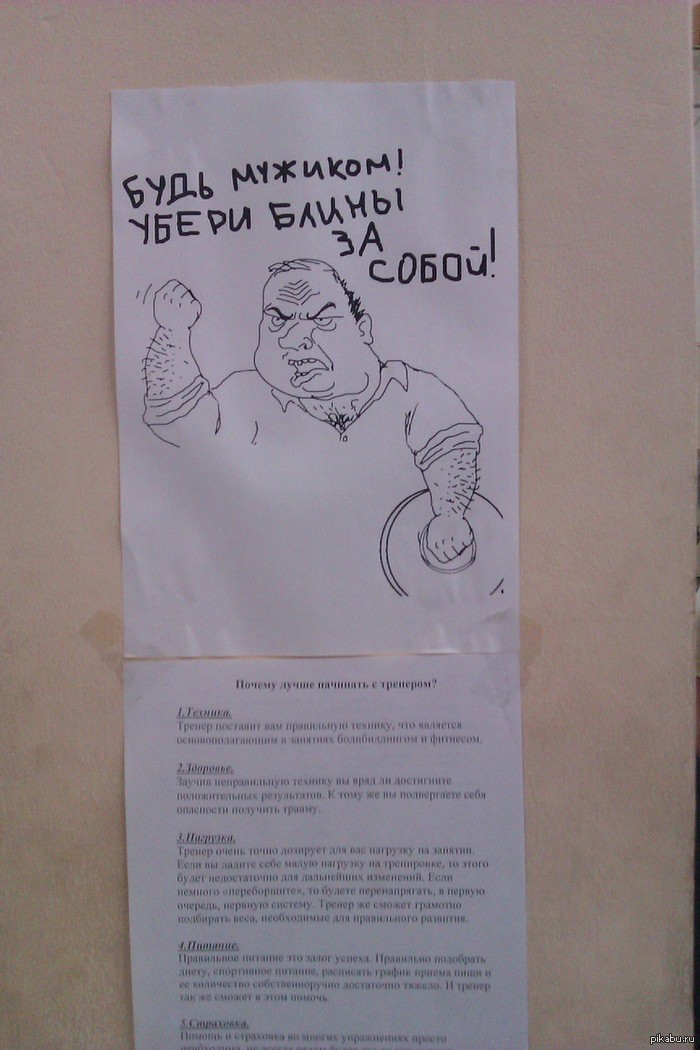 БУДЬ МУЖИКОМ!
УБЕРИ БЛИНЫ
ЗА
СОБОЙ!
Почему лучше начинать с тренером?
1.Техника.
Тренер поставит вам правильную технику, что является
основополагающим в занятиях бодибилдингом и фитнесом.
2.Здоровье.
Заучив неправильную технику вы вряд ли достигните
положительных результатов. К тому же вы подвергаете себя
опасности получить травму.
3.Нагрузка.
Тренер очень точно дозирует для вас нагрузку на занятии.
Если вы дадите себе малую нагрузку на тренировке, то этого
будет недостаточно для дальнейших изменений. Если
немного «переборщите», то будете перенапрягать, в первую
очередь, нервную систему. Тренер же сможет грамотно
подбирать веса, необходимые для правильного развития.
4.Питание.
Правильное питание это залог успеха. Правильно подобрать
диету, спортивное питание, расписать график приема пищи и
ее количество собственноручно достаточно тяжело. И тренер
так же сможет в этом помочь.
5.Страховка.
Помощь и страховка во многих упражнениях просто
необходима, не всегда
pikabu.ru